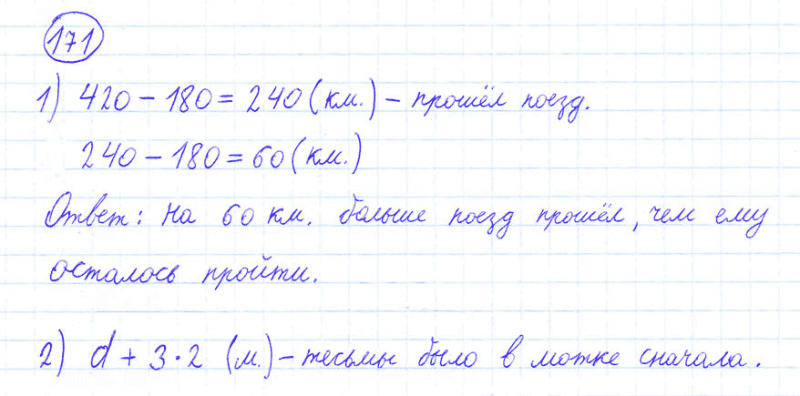 171
1) 420 - 180 = 240 (км.) - прошёл поезд.
240 - 180 = 60 (км.)
Ответ: на 60 км. больше поезд прошёл, чем ему
осталось пройти.
2) d + 3 · 2 (м.) - тесьмы было в мотке сначала.